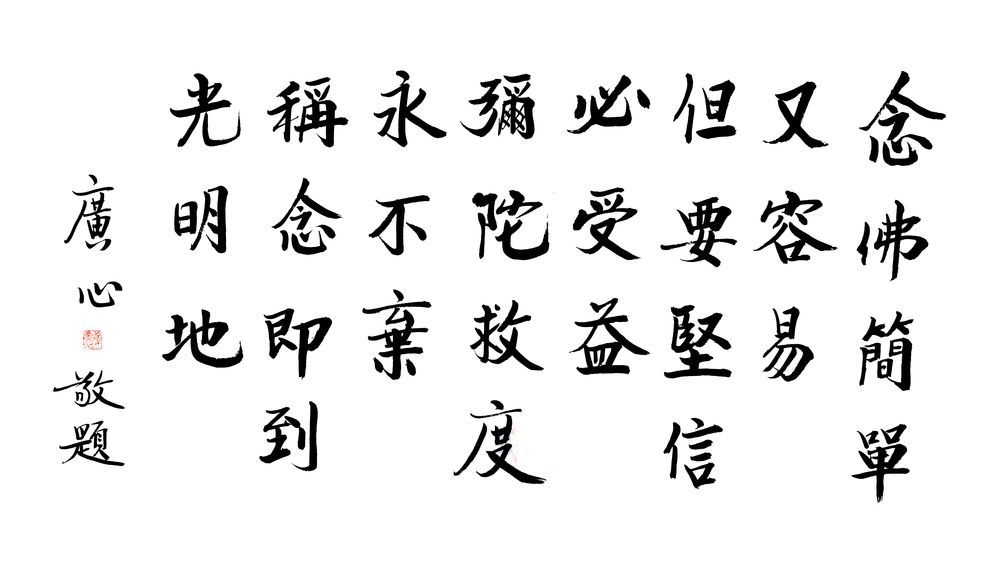 念佛簡單
又容易
但要堅信
必受益
彌陀救度
永不棄
稱念即到
光明地
廣心
敬題